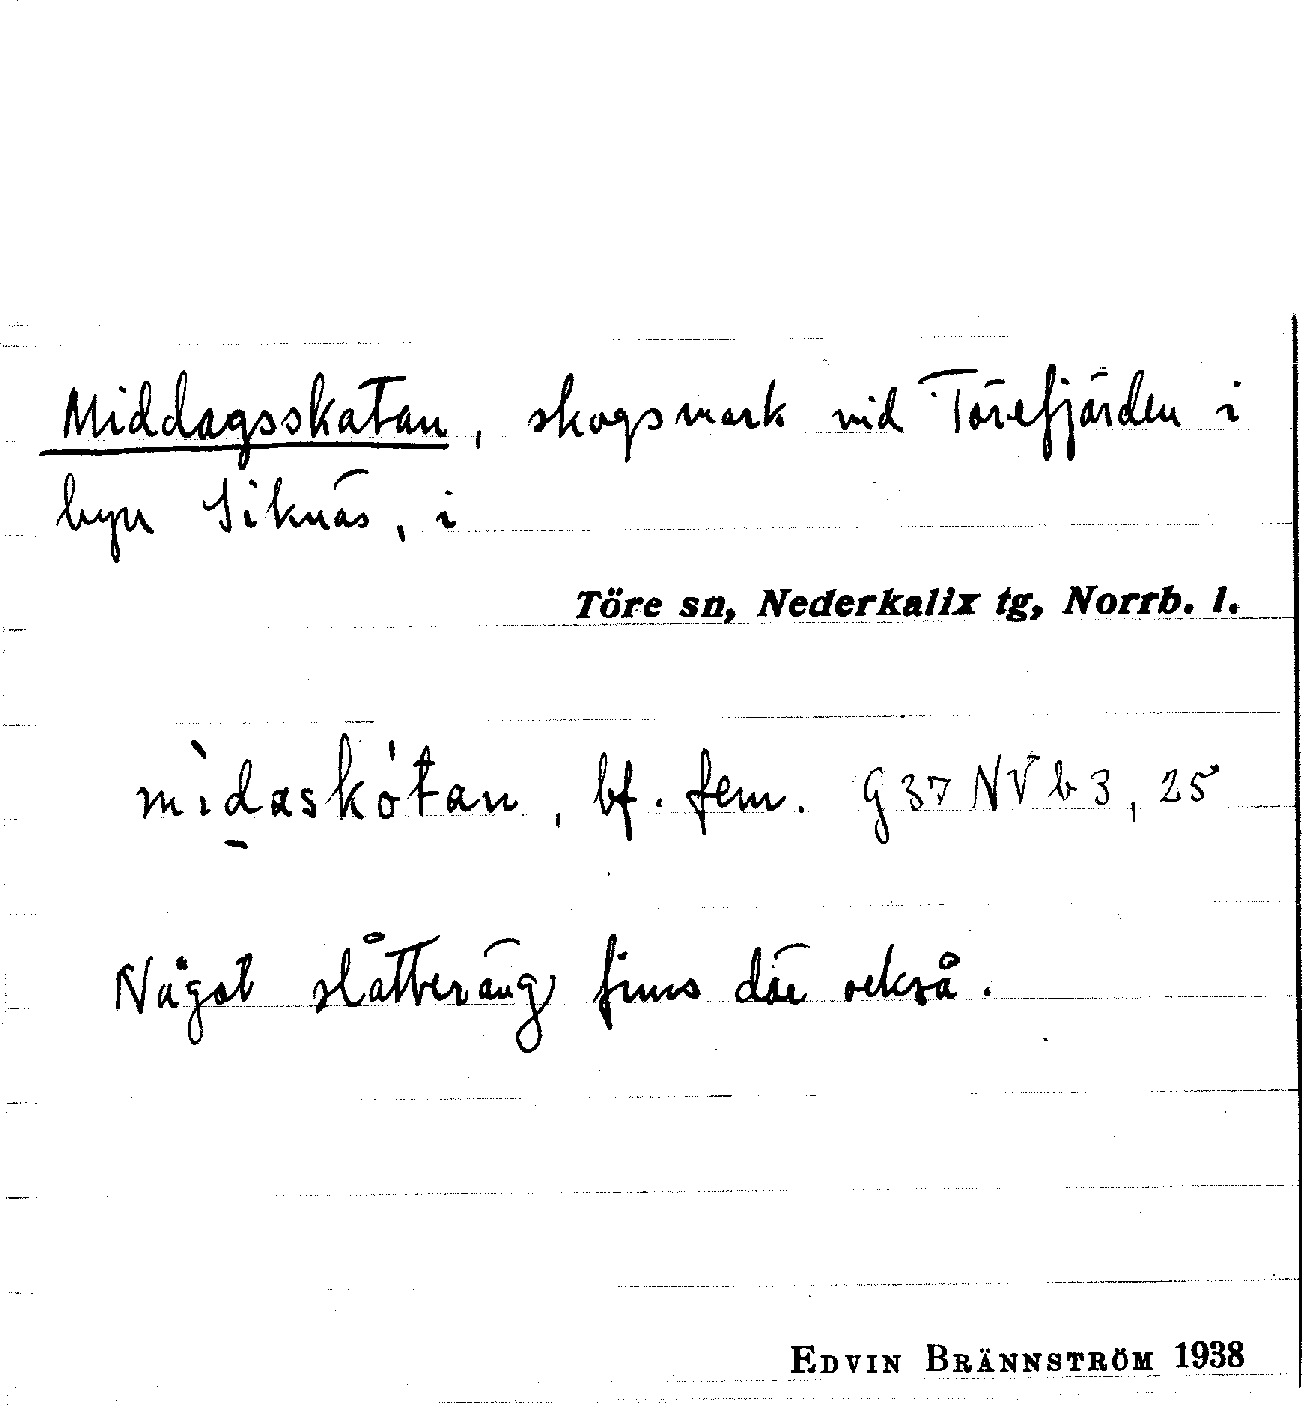 Middagsskatan, skogsmark vid Törefjärden i
byn Siknäs, i
Töre sn, Nederkalix tg, Norrb. l.
mìdaskótan, bf. fem. G 37 NV b 3, 25
Något slåtteräng finns där också.
EDVIN BRÄNNSTRÖM 1938